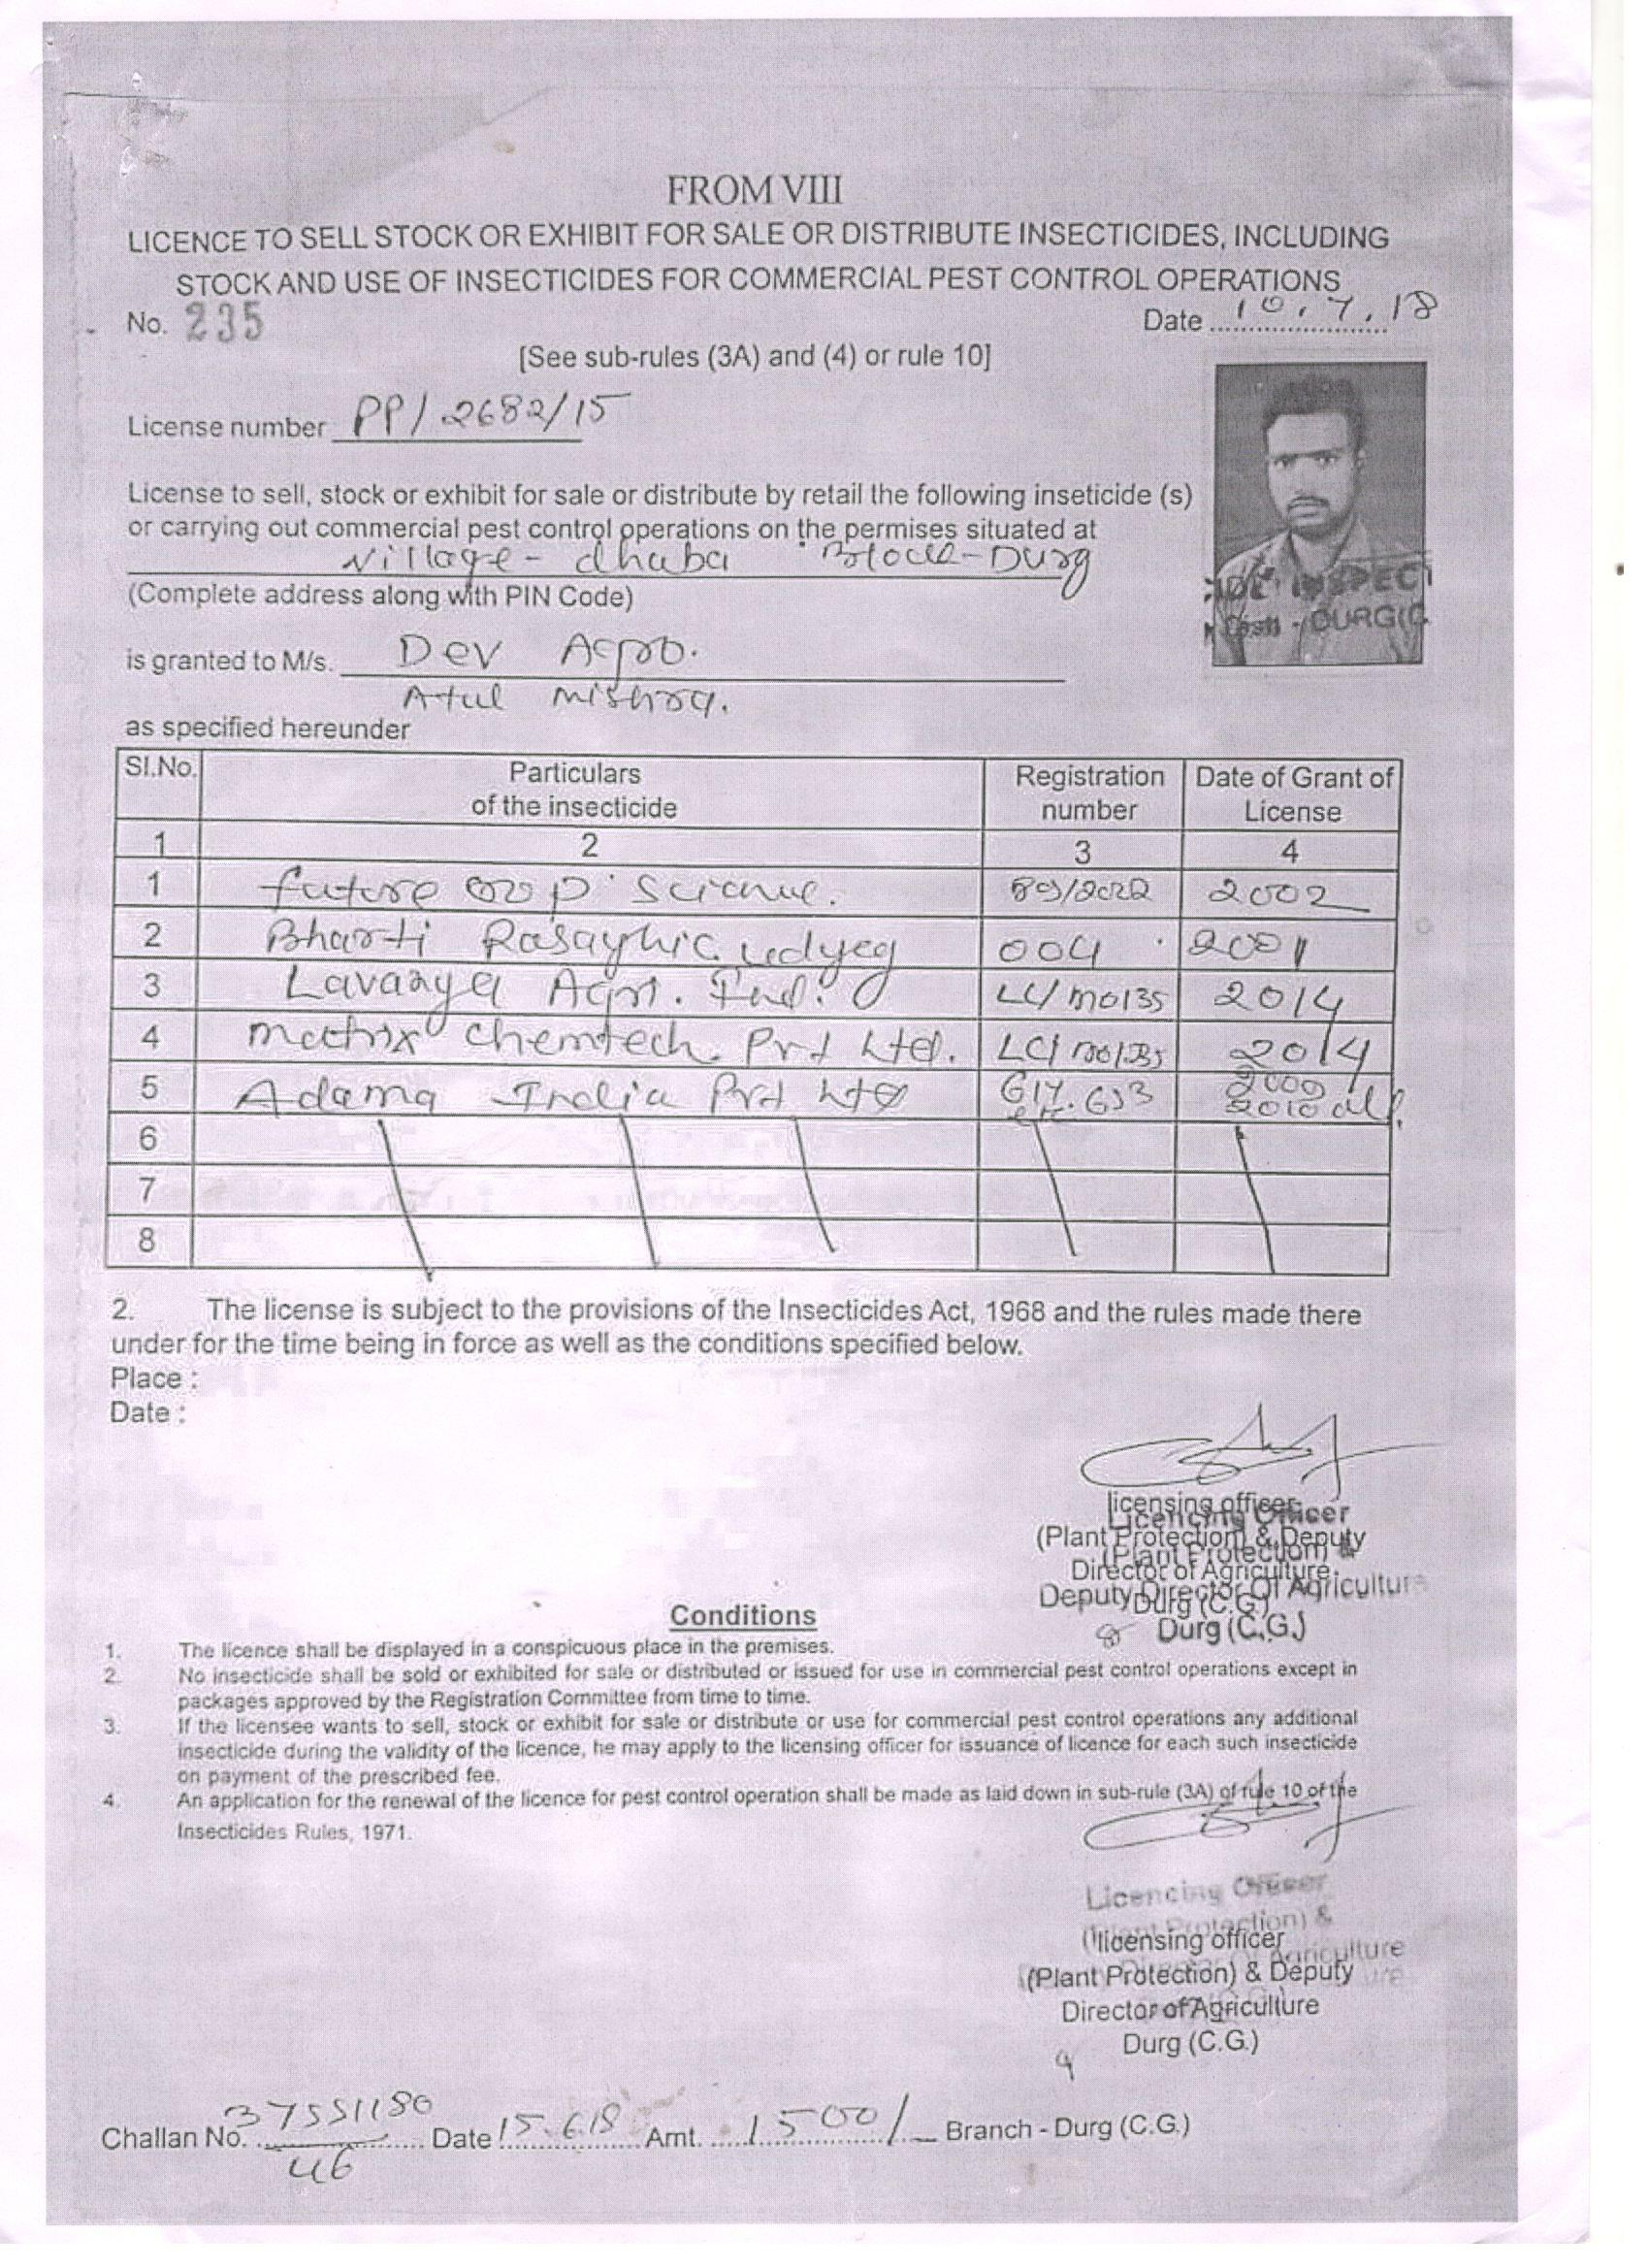 FROM VIII
LICENCE TO SELL STOCK OR EXHIBIT FOR SALE OR DISTRIBUTE INSECTICIDES, INCLUDING
STOCK AND USE OF INSECTICIDES FOR COMMERCIAL PEST CONTROL OPERATIONS
No. 235 Date 10.7.18
[See sub-rules (3A) and (4) or rule 10]
License number PP/2682/15
License to sell, stock or exhibit for sale or distribute by retail the following inseticide (s)
or carrying out commercial pest control operations on the permises situated at
Village - dhaba Block-Durg
(Complete address along with PIN Code)
is granted to M/s. Dev Agro.
Atul Mishra.
as specified hereunder
Sl.No. Particulars of the insecticide Registration number Date of Grant of License
1 2 3 4
1 future crop Science. 2002
2 Bharti Rasaynic udyog 004 2001
3 Lavanya Agri. Ind. LC/m0135 2014
4 matrix Chemtech Pvt Ltd. 2014
5 Adama India Pvt Ltd 617.653 2009 2010
6
7
8
2. The license is subject to the provisions of the Insecticides Act, 1968 and the rules made there
under for the time being in force as well as the conditions specified below.
Place :
Date :
licensing officer
Licencing Officer
(Plant Protection) & Deputy
(Plant Protection) &
Director of Agriculture
Deputy Director Of Agriculture
Durg (C.G.)
Durg (C.G.)
Conditions
1. The licence shall be displayed in a conspicuous place in the premises.
2. No insecticide shall be sold or exhibited for sale or distributed or issued for use in commercial pest control operations except in
packages approved by the Registration Committee from time to time.
3. If the licensee wants to sell, stock or exhibit for sale or distribute or use for commercial pest control operations any additional
insecticide during the validity of the licence, he may apply to the licensing officer for issuance of licence for each such insecticide
on payment of the prescribed fee.
4. An application for the renewal of the licence for pest control operation shall be made as laid down in sub-rule (3A) of rule 10 of the
Insecticides Rules, 1971.
Licencing Officer
(Plant Protection) &
licensing officer
(Plant Protection) & Deputy
Director of Agriculture
Durg (C.G.)
Challan No. 37551180 Date 15.6.18 Amt. 1500/ Branch - Durg (C.G.)
46